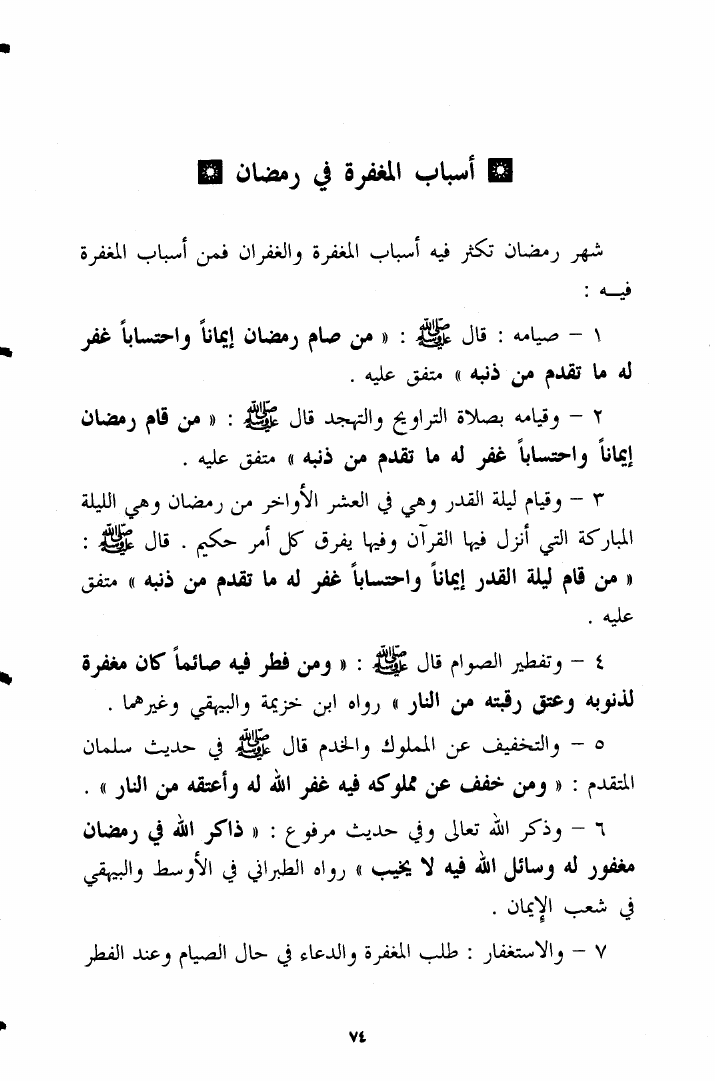 أسباب المغفرة في رمضان
شهر رمضان تكثر فيه أسباب المغفرة والغفران فمن أسباب المغفرة
فيــه :
١ – صيامه : قال ﷺ : « من صام رمضان إيماناً واحتساباً غفر
له ما تقدم من ذنبه » متفق عليه .
٢ – وقيامه بصلاة التراويح والتهجد قال ﷺ : « من قام رمضان
إيماناً واحتساباً غفر له ما تقدم من ذنبه » متفق عليه .
٣ – وقيام ليلة القدر وهي في العشر الأواخر من رمضان وهي الليلة
المباركة التي أنزل فيها القرآن وفيها يفرق كل أمر حكيم . قال ﷺ :
« من قام ليلة القدر إيماناً واحتساباً غفر له ما تقدم من ذنبه » متفق
عليه .
٤ – وتفطير الصوام قال ﷺ : « ومن فطر فيه صائماً كان مغفرة
لذنوبه وعتق رقبته من النار » رواه ابن خزيمة والبيهقي وغيرهما .
٥ – والتخفيف عن المملوك والخدم قال ﷺ في حديث سلمان
المتقدم : « ومن خفف عن مملوكه فيه غفر الله له وأعتقه من النار » .
٦ – وذكر الله تعالى وفي حديث مرفوع : « ذاكر الله في رمضان
مغفور له وسائل الله فيه لا يخيب » رواه الطبراني في الأوسط والبيهقي
في شعب الإيمان .
٧ – والاستغفار : طلب المغفرة والدعاء في حال الصيام وعند الفطر
٧٤